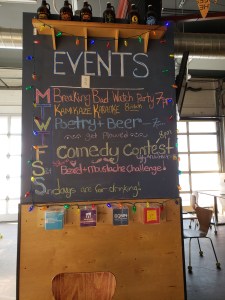 EVENTS
M Breaking Bad Watch Party 7pm
T KAMIKAZE KARAOKE
W Poetry + Beer 7
T
F Comedy Contest
S Beard + Mustache Challenge!
S Sundays are for drinking!